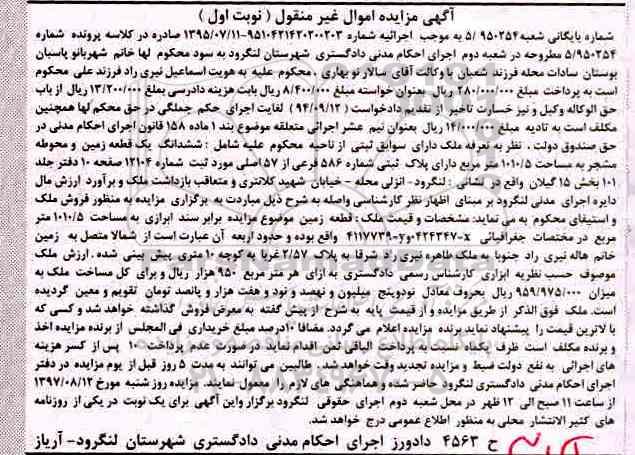 آگهی مزایده اموال غیر منقول ( نوبت اول )
شماره بایگانی شعبه ۵/۹۵۰۲۵۴ به موجب اجرائیه شماره ۹۵۱۰۴۲۱۴۲۰۲۰۰۲۰۳-۱۳۹۵/۰۷/۱۱ صادره در کلاسه پرونده شماره
۵/۹۵۰۲۵۴ مطروحه در شعبه دوم اجرای احکام مدنی دادگستری شهرستان لنگرود به سود محکوم لها خانم شهربانو پاسبان
بوستان سادات محله فرزند شعبان با وکالت آقای سالار نوبهاری ، محکوم علیه به هویت اسماعیل نیری راد فرزند علی محکوم
است به پرداخت مبلغ ۲۸۰/۰۰۰/۰۰۰ ریال بعنوان خواسته مبلغ ۸/۴۰۰/۰۰۰ ریال بابت هزینه دادرسی بمبلغ ۱۳/۲۰۰/۰۰۰ ریال از باب
حق الوکاله وکیل و نیز خسارت تاخیر از تقدیم دادخواست ( ۹۴/۰۹/۱۲ ) لغایت اجرای حکم جملگی در حق محکم لها همچنین
مکلف است به تادیه مبلغ ۱۴/۰۰۰/۰۰۰ ریال بعنوان نیم عشر اجرائی متعلقه موضوع بند ۱ ماده ۱۵۸ قانون اجرای احکام مدنی در
حق صندوق دولت . نظر به تعرفه ملک دارای سوابق ثبتی از ناحیه محکوم علیه شامل : ششدانگ یک قطعه زمین و محوطه
مشجر به مساحت ۱۰۱۰/۵ متر مربع دارای پلاک ثبتی شماره ۵۸۶ فرعی از ۵۷ اصلی مورد ثبت شماره ۱۲۱۰۴ صفحه ۱۰ دفتر جلد
۱۰۱ بخش ۱۵ گیلان واقع در نشانی : لنگرود- انزلی محله - خیابان شهید کلانتری و متعاقب بازداشت ملک و برآورد ارزش مال
دایره اجرای مدنی لنگرود بر مبنای اظهار نظر کارشناسی واصله به شرح ذیل مبادرت به برگزاری مزایده به منظور فروش ملک
و استیفای محکوم به می نماید: مشخصات و قیمت ملک : قطعه زمین موضوع مزایده برابر سند ابرازی به مساحت ۱۰۱۰/۵ متر
مربع در مختصات جغرافیائی x-۴۲۴۳۴۷ وy-۴۱۱۷۷۳۹ واقع بوده و حدود اربعه آن عبارت است از شمالا متصل به زمین
خانم هاله نیری راد جنوبا به ملک طاهره نیری راد شرقا به پلاک ۲/۵۷ غربا به کوچه ۱۰ متری پیش بینی شده . ارزش ملک
موصوف حسب نظریه ابرازی کارشناس رسمی دادگستری به ازای هر متر مربع ۹۵۰ هزار ریال و برای کل مساحت ملک به
میزان ۹۵۹/۹۷۵/۰۰۰ ریال بحروف معادل نودوپنج میلیون و نهصد و نود و هفت هزار و پانصد تومان تقویم و معین گردیده
است. ملک فوق الذکر از طریق مزایده و از قیمت پایه به شرح از پیش گفته به معرض فروش گذاشته خواهد شد و کسی که
با لاترین قیمت را پیشنهاد نماید برنده مزایده اعلام می گردد. مضافا ۱۰درصد مبلغ خریداری فی المجلس از برنده مزایده اخذ
و برنده مکلف است ظرف یکماه نسبت به پرداخت الباقی ثمن اقدام نماید در صورت عدم پرداخت ۱۰ پس از کسر هزینه
های اجرائی به نفع دولت ضبط و مزایده تجدید وقت خواهد شد. طالبین می توانند به مدت ۵ روز قبل از یوم مزایده در دفتر
اجرای احکام مدنی دادگستری لنگرود حاضر شده و هماهنگی های لازم را معمول نمایند. مزایده روز شنبه مورخ ۱۳۹۷/۰۸/۱۲
از ساعت ۱۱ صبح الی ۱۲ ظهر در محل شعبه دوم اجرای حقوقی لنگرود برگزار واین آگهی برای یک نوبت در یکی از روزنامه
های کثیر الانتشار محلی به منظور اطلاع عمومی درج خواهد شد.
ح ۴۵۶۳ دادورز اجرای احکام مدنی دادگستری شهرستان لنگرود- آریاز